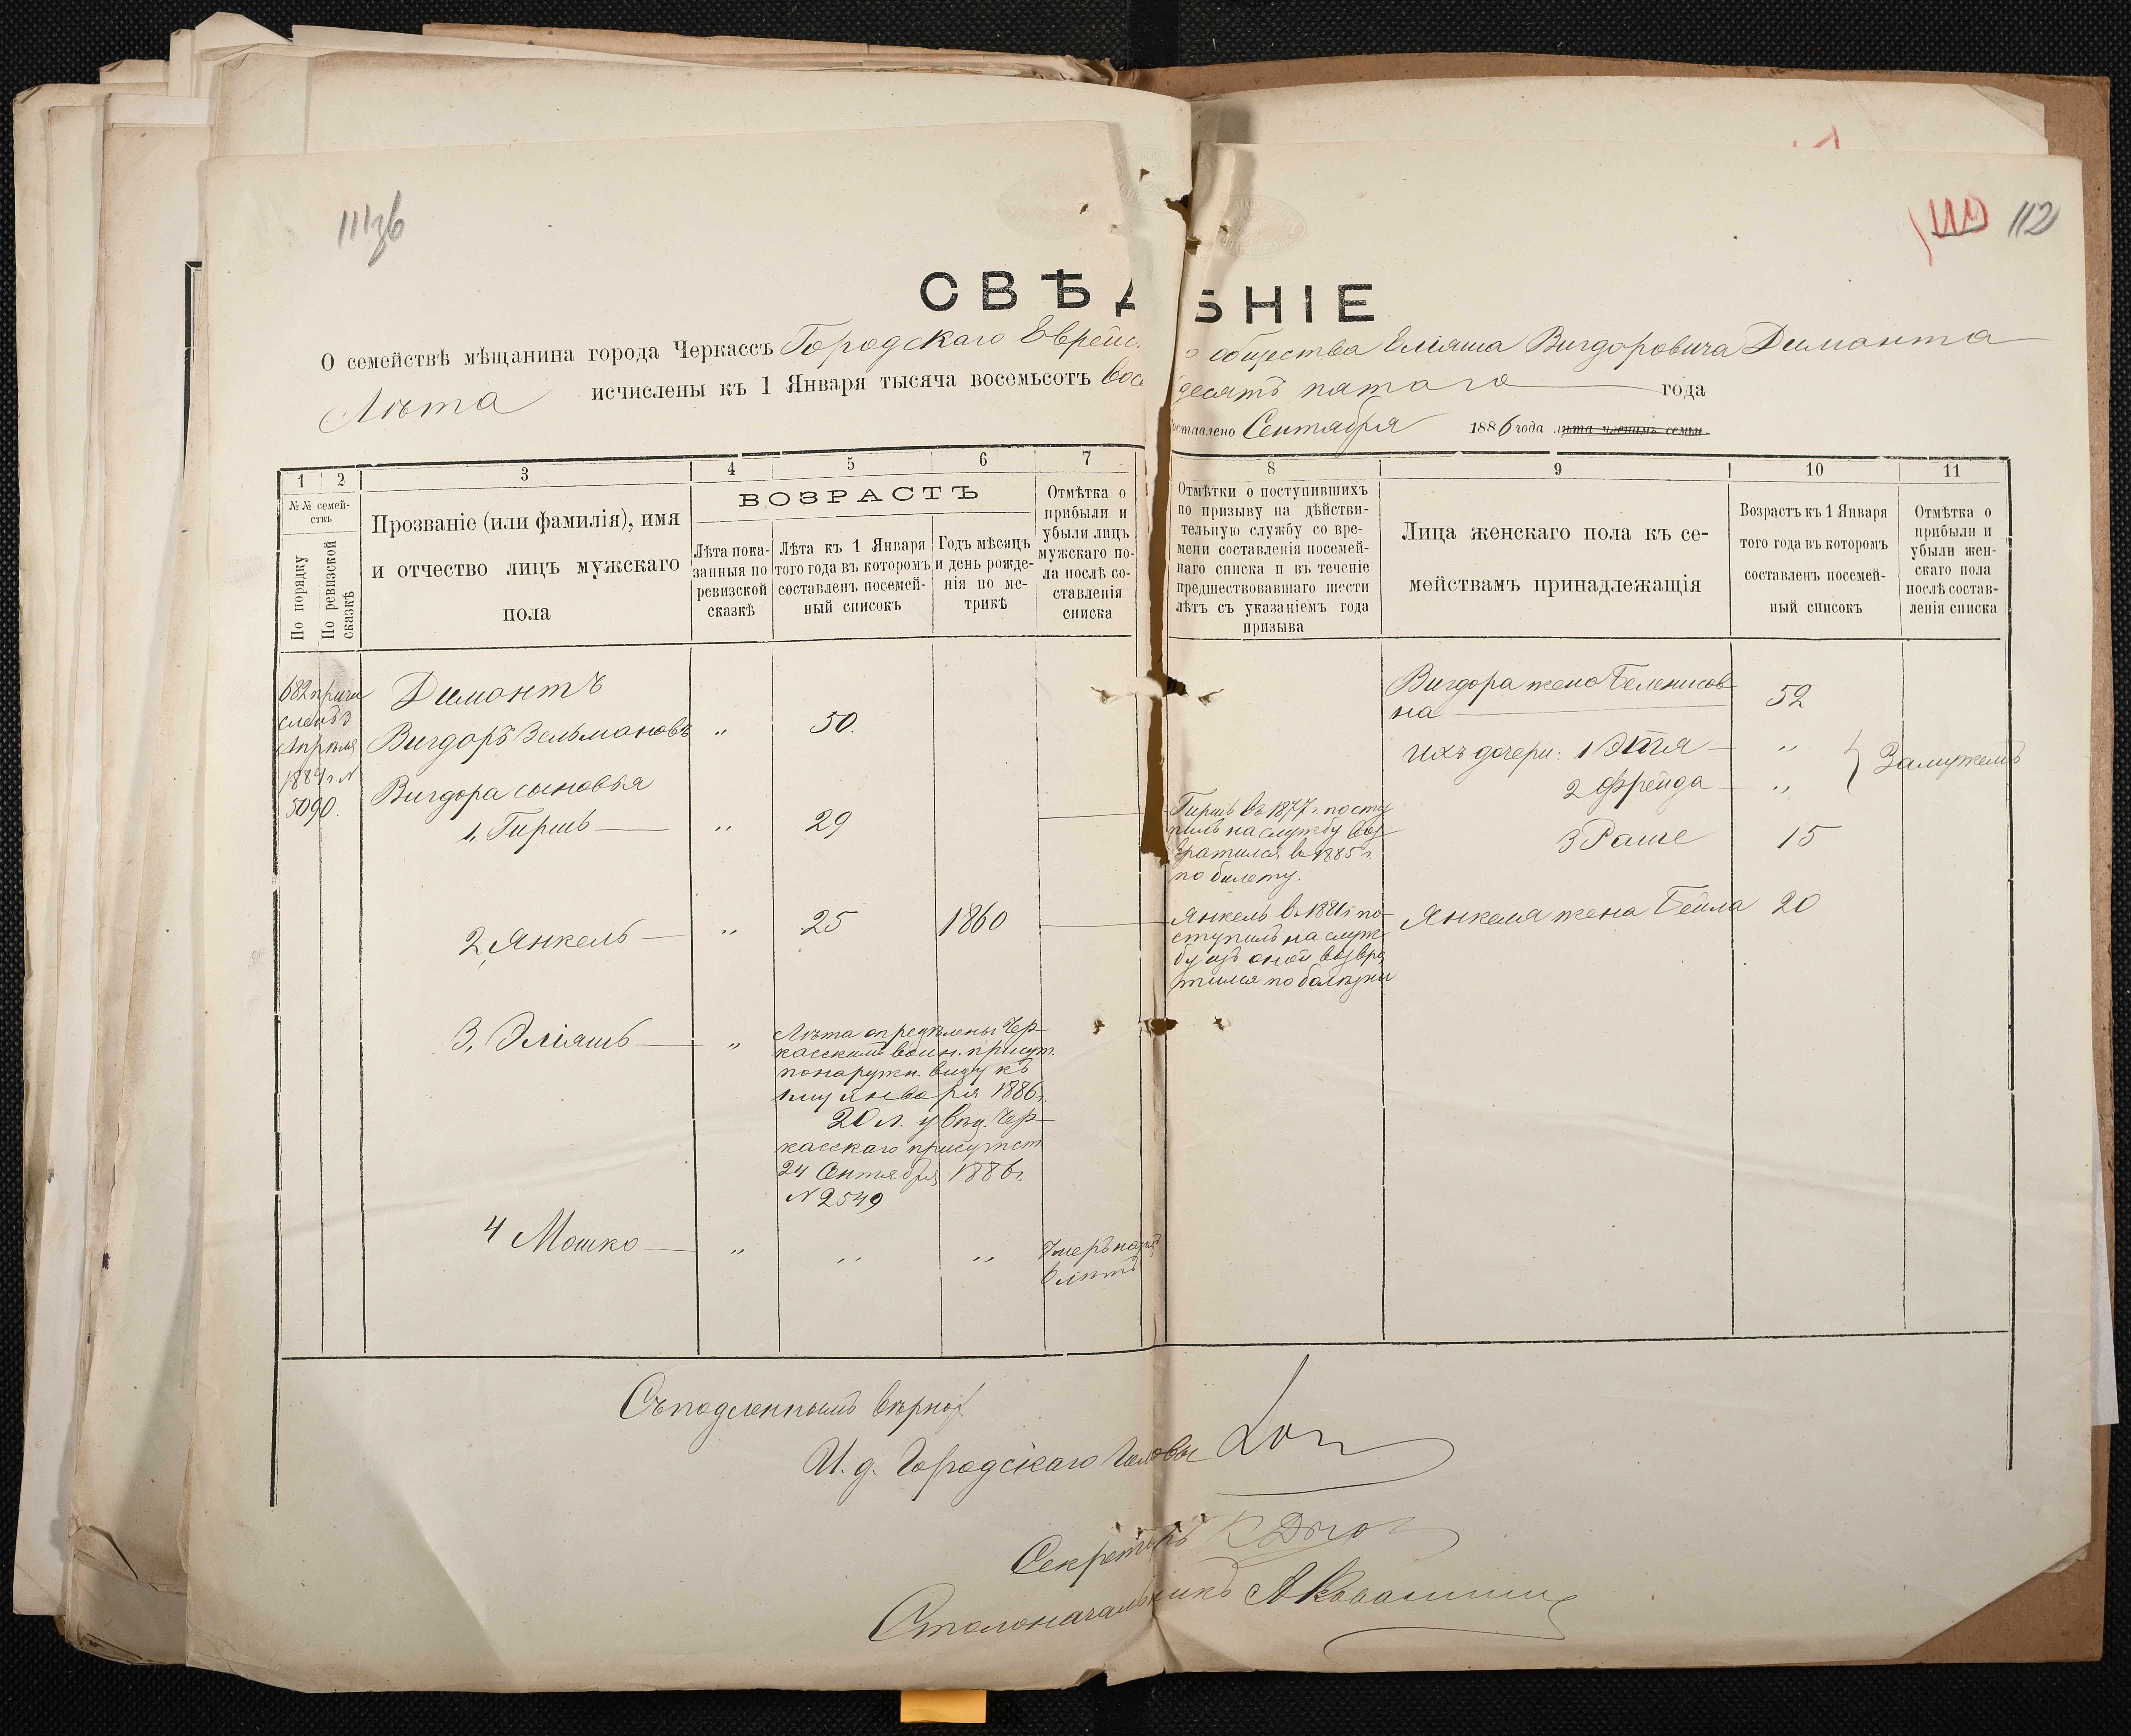 111зв
111 112
СВѢДѢНІЕ
О семействѣ мѣщанина города Черкассъ Городскаго Еврейс. о общества Еліяша Вигдоровича Димонта
Лѣта исчислены къ 1 Января тысяча восемьсотъ вос десятъ пятаго года
оставлено Сентября 1886 года лѣта членамъ семьи
1 2 3 4 5 6 7 8 9 10 11
№№ семей-
ствъ
По порядку
По ревизской
сказкѣ
Прозваніе (или фамилія), имя
и отчество лицъ мужскаго
пола
ВОЗРАСТЪ
Лѣта пока-
занныя по
ревизской
сказкѣ
Лѣта къ 1 Января
того года въ которомъ
составленъ посемей-
ный списокъ
Годъ мѣсяцъ
и день рожде-
нія по ме-
трикѣ
Отмѣтка о
прибыли и
убыли лицъ
мужскаго по-
ла послѣ со-
ставленія
списка
Отмѣтки о поступившихъ
по призыву на дѣйстви-
тельную службу со вре-
мени составленія посемей-
наго списка и въ теченіе
предшествовавшаго шести
лѣтъ съ указаніемъ года
призыва
Лица женскаго пола къ се-
мействамъ принадлежащія
Возрастъ къ 1 Января
того года въ которомъ
составленъ посемей-
ный списокъ
Отмѣтка о
прибыли и
убыли жен-
скаго пола
послѣ состав-
ленія списка
682 причи
сленъ 3
Апрѣля
1884 г. №
5090.
Димонтъ
Вигдоръ Зельмановъ " 50.
Вигдора сыновья
1, Гиршъ " 29
Гиршъ въ 1877 г. посту
пилъ на службу воз
вратился въ 1885 г.
по билету.
2, Янкель " 25 1860
Янкель въ 1881 г. по-
ступилъ на служ
бу изъ оной возвра
тился по болѣзни
3, Эліяшъ "
Лѣта опредѣлены Чер
касскимъ воин. присут.
по наружн. виду къ
1му января 1886 г.
20 л. увѣд. Чер
касскаго присутст
24 Сентября 1886 г.
№ 2549
4 Мошко " " "
Умеръ назадъ
6 лѣтъ
Вигдора жена
на 52
ихъ дочери: 1 Этя "
2 Фрейда "
Замужемъ
3 Раше 15
Янкеля жена Бейла 20
Съ подленнымъ вѣрно
И. д. Городскаго Головы
Секретарь
Столоначальникъ